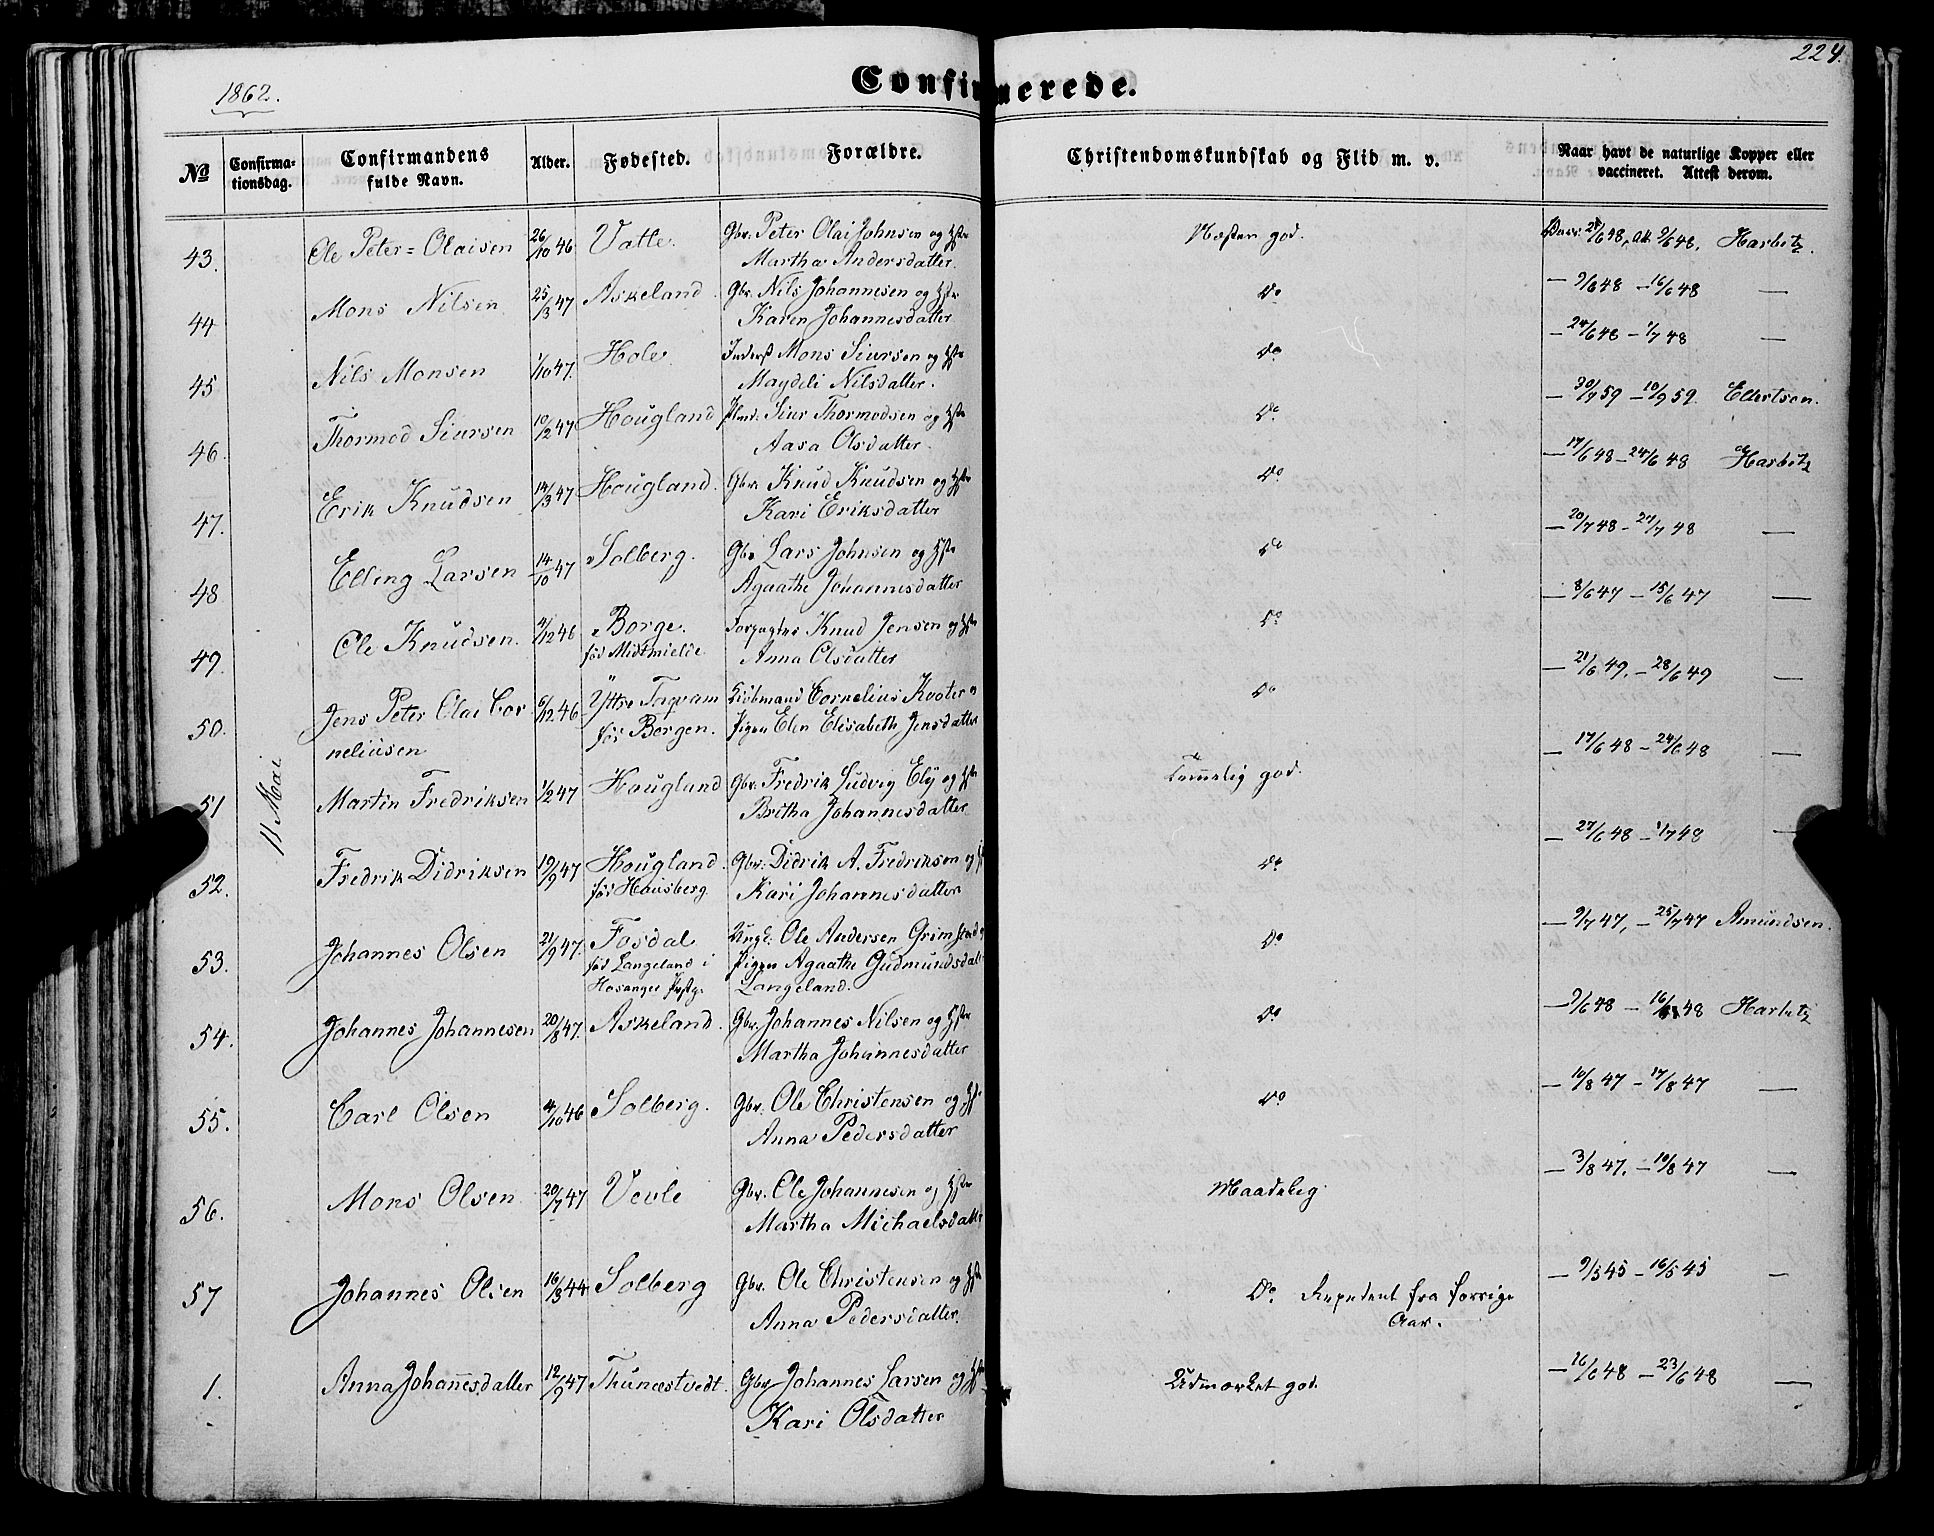 224.
1862.
Confirmerede.
No Confirmationsdag. Confirmandens fulde Navn. Alder. Fødested. Forældre. Christendomskundskab og Flid m. v. Naar havt de naturlige Kopper eller vaccineret. Attest derom.
11 Mai
43. Ole Peter=Olaisen 26/10 46 Vatle. Gbr. Peter Olai Johnsen og Hstr Martha Andersdatter. Næsten god. 9/6 48, Harbitz.
44 Mons Nilsen 25/3 47 Askeland. Gbr. Nils Johannesen og Hstr Karen Johannesdatter Do — 9/6 48 — 16/6 48 —
45 Nils Monsen 1/10 47. Hole. Inderst Mons Siursen og Hstr Magdeli Nilsdatter. Do — 24/6 48 — 1/7 48 —
46. Thormod Siursen 10/2 47 Hougland Siur Thormodsen og Hstr Aasa Olsdatter. Do — 59 — 10/9 59 Ellertsen.
47. Erik Knudsen 14/3 47 Hougland. Gbr. Knud Knudsen og Hstr Kari Eriksdatter Do — 17/6 48 — 24/6 48 Harbitz
48 Elling Larsen 14/10 47 Solberg. Gbr Lars Johnsen og Hstr Agaathe Johannesdatter Do — 20/7 48 — 27/7 48 —
49. Ole Knudsen. /12 46 Borge. fød Midtmielde Forpagter Knud Jensen og Hstr Anna Olsdatter Do — 8/6 47 — 15/6 47 —
50. Jens Peter Olai Corneliusen 6/12 46 Yttre Toqvam fød Bergen. Cornelius Kooter og Pigen Elen Elisabeth Jensdatter Do — 21/6 49. — 28/6 49 —
51 Martin Fredriksen 1/2 47 Hougland Gbr. Fredrik Ludvig Ely og Hstr Britha Johannesdatter Temmelig god. — 17/6 48 — 24/6 48 —
52. Fredrik Didriksen 19/9 47 Hougland. fød Housberg Gbr. Didrik A. Fredriksen og Kari Johannesdatter Do — 27/6 48 — 48 —
53. Johannes Olsen 21/9 47. Fosdal fød Langeland i Hosanger Prstgj. Ungk. Ole Andersen Grimstad Pigen Agaathe Gudmundsdatt Langeland. Do — 9/7 47, — 25/7 47 Amundsen.
54. Johannes Johannesen 20/8 47. Askeland. Gbr. Johannes Nilsen og Hstr Martha Johannesdatter Do — 9/6 48 — 48 Harbitz
55. Carl Olsen 4/10 46 Solberg. Gbr. Ole Christensen og Anna Pedersdatter Do — 10/8 47 — 17/8 47 —
56. Mons Olsen 20/7 47 Vevle Gbr. Ole Johannesen og Hstr Martha Michaelsdatt Maadelig. — 3/8 47. — 10/8 47 —
57 Johannes Olsen 16/3 44 Solberg Gbr. Ole Christensen og Hstr Anna Pedersdatter. Do. Repetent fra forrige Aar. — 9/5 45 — 16/5 45 —
1. Anna Johannesdatter 12/9 47 Thunæstvedt. Gbr Johannes Larsen og Hstr Kari Olsdatter Udmærket god. — 16/6 48 — 23/6 48 —